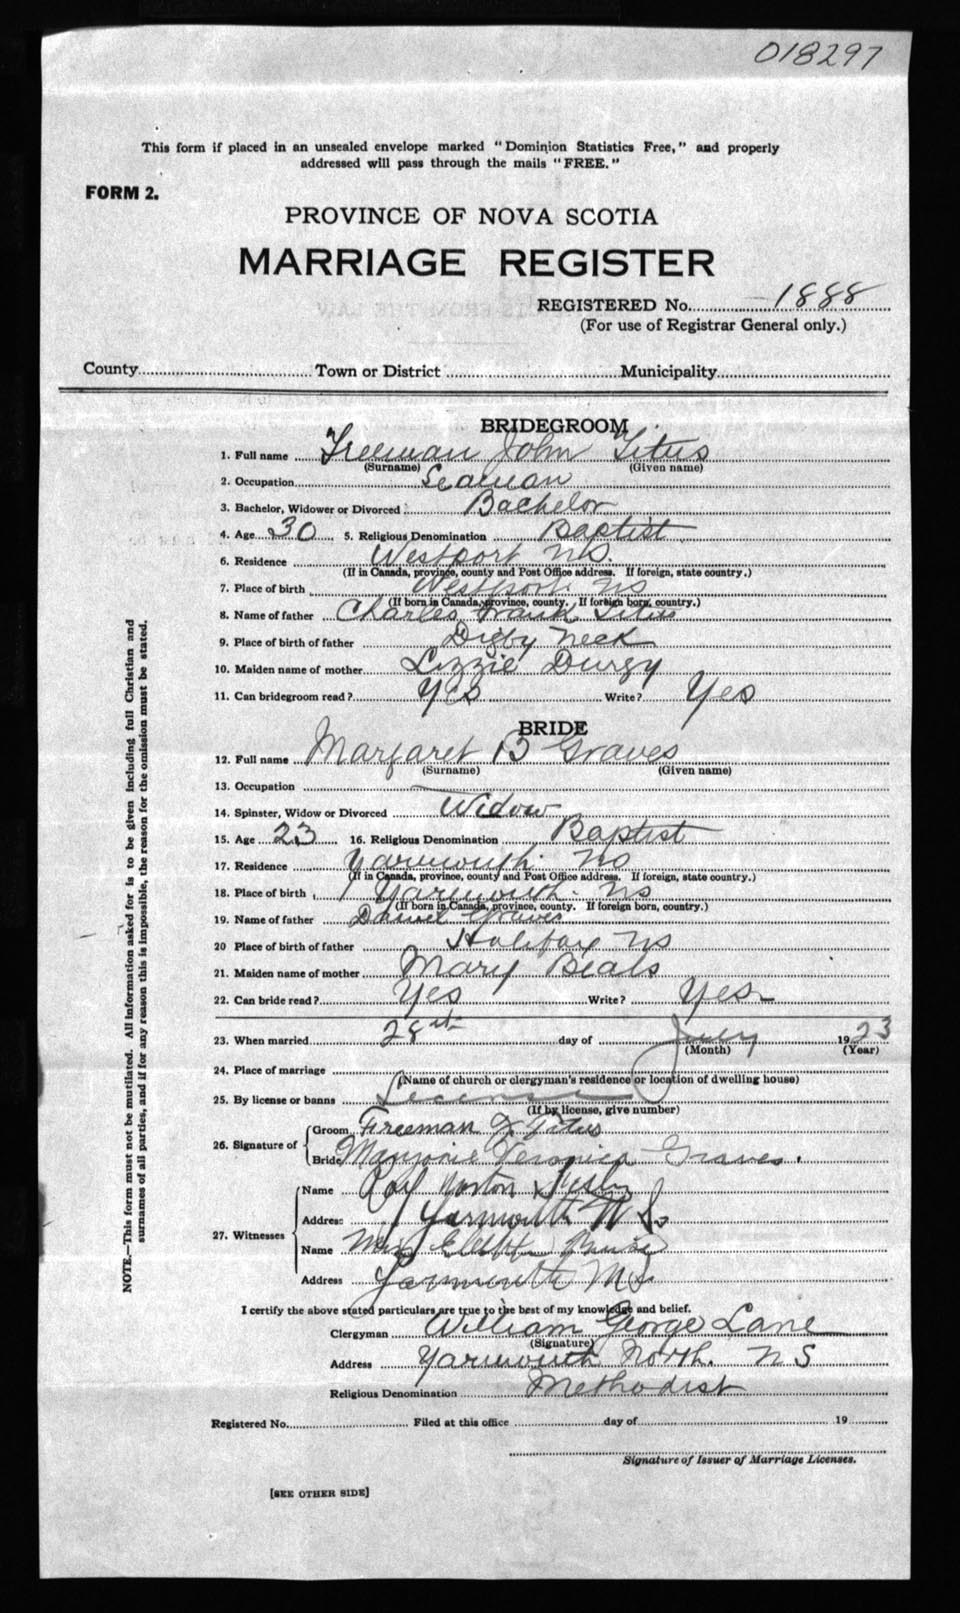 018297
This form if placed in an unsealed envelope marked "Dominion Statistics Free," and properly
addressed will pass through the mails "FREE."
FORM 2.
PROVINCE OF NOVA SCOTIA
MARRIAGE REGISTER
REGISTERED No. 1888
(For use of Registrar General only.)
County Town or District Municipality
BRIDEGROOM
1. Full name Freeman John Titus
(Surname) (Given name)
2. Occupation Seaman
3. Bachelor, Widower or Divorced Bachelor
4. Age 30 5. Religious Denomination Baptist
6. Residence Westport NS.
(If in Canada, province, county and Post Office address. If foreign, state country.)
7. Place of birth Westport NS
(If born in Canada, province, county. If foreign born, country.)
8. Name of father Charles Frank Titus
9. Place of birth of father Digby Neck
10. Maiden name of mother Lizzie Durgy
11. Can bridegroom read? Yes Write? Yes
BRIDE
12. Full name Margaret B Graves
(Surname) (Given name)
13. Occupation
14. Spinster, Widow or Divorced Widow
15. Age 23 16. Religious Denomination Baptist
17. Residence Yarmouth NS
(If in Canada, province, county and Post Office address. If foreign, state country.)
18. Place of birth Yarmouth NS
(If born in Canada, province, county. If foreign born, country.)
19. Name of father Daniel Graves
20 Place of birth of father Halifax NS
21. Maiden name of mother Mary Beals
22. Can bride read? Yes Write? Yes
23. When married 28th day of July 1923
(Month) (Year)
24. Place of marriage
(Name of church or clergyman's residence or location of dwelling house)
25. By license or banns License
(If by license, give number)
26. Signature of
Groom Freeman J. Titus
Bride Marjorie Veronica Graves.
27. Witnesses
Name Norton
Address Yarmouth N S.
Name
Address Yarmouth N S
I certify the above stated particulars are true to the best of my knowledge and belief.
Clergyman William George Lane
(Signature)
Address Yarmouth North. N S
Religious Denomination Methodist
Registered No. Filed at this office day of 19
Signature of Issuer of Marriage Licenses.
[SEE OTHER SIDE]
NOTE.—This form must not be mutilated. All information asked for is to be given including full Christian and
surnames of all parties, and if for any reason this is impossible, the reason for the omission must be stated.